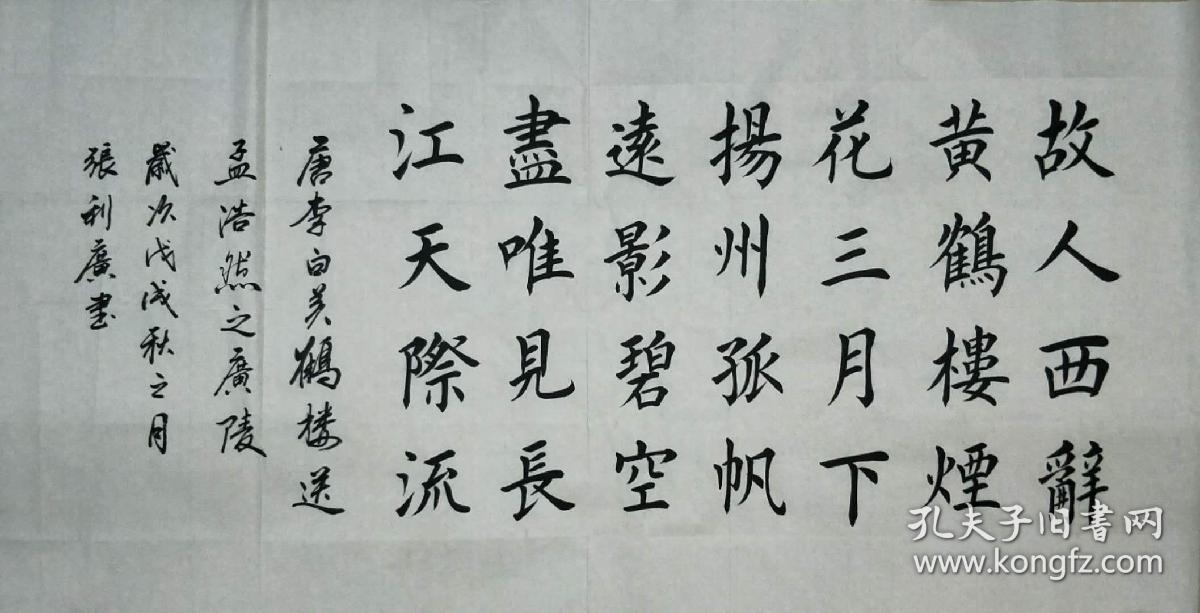 故人西辭
黄鶴樓煙
花三月下
揚州孤帆
遠影碧空
盡唯見長
江天際流
唐李白黄鶴楼送
孟浩然之廣陵
歲次戊戌秋之月
張利廣書
孔夫子旧書网
www.kongfz.com